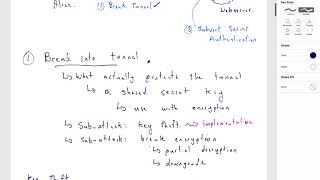 Alice.
① Break Tunnel
Webserver.
③ Subvert Server
Authentication
① Break into tunnel
↳ What actually protects the tunnel
↳ a shared secret key
↳ use with encryption
↳ Sub-attack: key theft → implementation
↳ Sub-attack: break encryption
↳ partial decryption
↳ downgrade
Key Theft